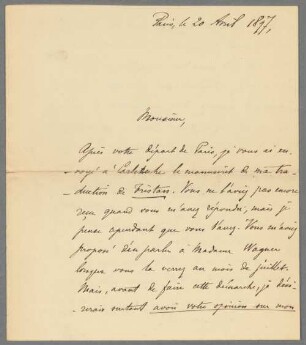 Paris, le 20 Avril 1897,
Monsieur,
Après votre départ de Paris, je vous ai en-
voyé à Carlsruhe le manuscrit de ma tra-
-duction de Tristan. Vous ne l'aviez pas encore
reçu quand vous m'avez répondu, mais je
pense cependant que vous l'avez. Vous m'aviez
proposé d'en parler à Madame Wagner
lorsque vous la verrez au mois de juillet.
Mais, avant de faire cette démarche, je dési-
-rerais surtout avoir votre opinion sur mon